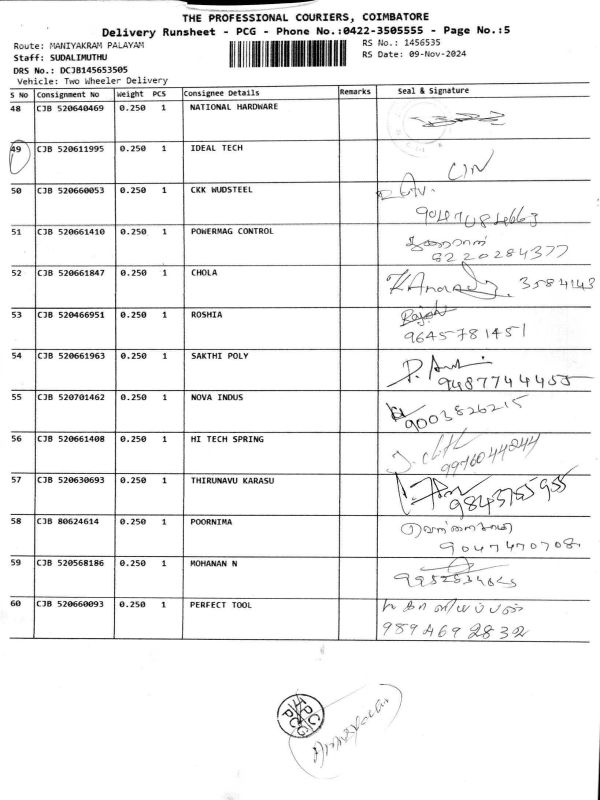 THE PROFESSIONAL COURIERS, COIMBATORE
Delivery Runsheet - PCG - Phone No.:0422-3505555 - Page No.:5
Route: MANIYAKRAM PALAYAM RS No.: 1456535
Staff: SUDALIMUTHU RS Date: 09-Nov-2024
DRS No.: DCJB145653505
Vehicle: Two Wheeler Delivery
S No Consignment No Weight PCS Consignee Details Remarks Seal & Signature
48 CJB 520640469 0.250 1 NATIONAL HARDWARE
49 CJB 520611995 0.250 1 IDEAL TECH
50 CJB 520660053 0.250 1 CKK WUDSTEEL
51 CJB 520661410 0.250 1 POWERMAG CONTROL
8220284377
52 CJB 520661847 0.250 1 CHOLA
3584143
53 CJB 520466951 0.250 1 ROSHIA
9645781451
54 CJB 520661963 0.250 1 SAKTHI POLY
9487744455
55 CJB 520701462 0.250 1 NOVA INDUS
9003826215
56 CJB 520661408 0.250 1 HI TECH SPRING
9976044044
57 CJB 520630693 0.250 1 THIRUNAVU KARASU
9843755955
58 CJB 80624614 0.250 1 POORNIMA
9047470708
59 CJB 520568186 0.250 1 MOHANAN N
60 CJB 520660093 0.250 1 PERFECT TOOL
9894692832